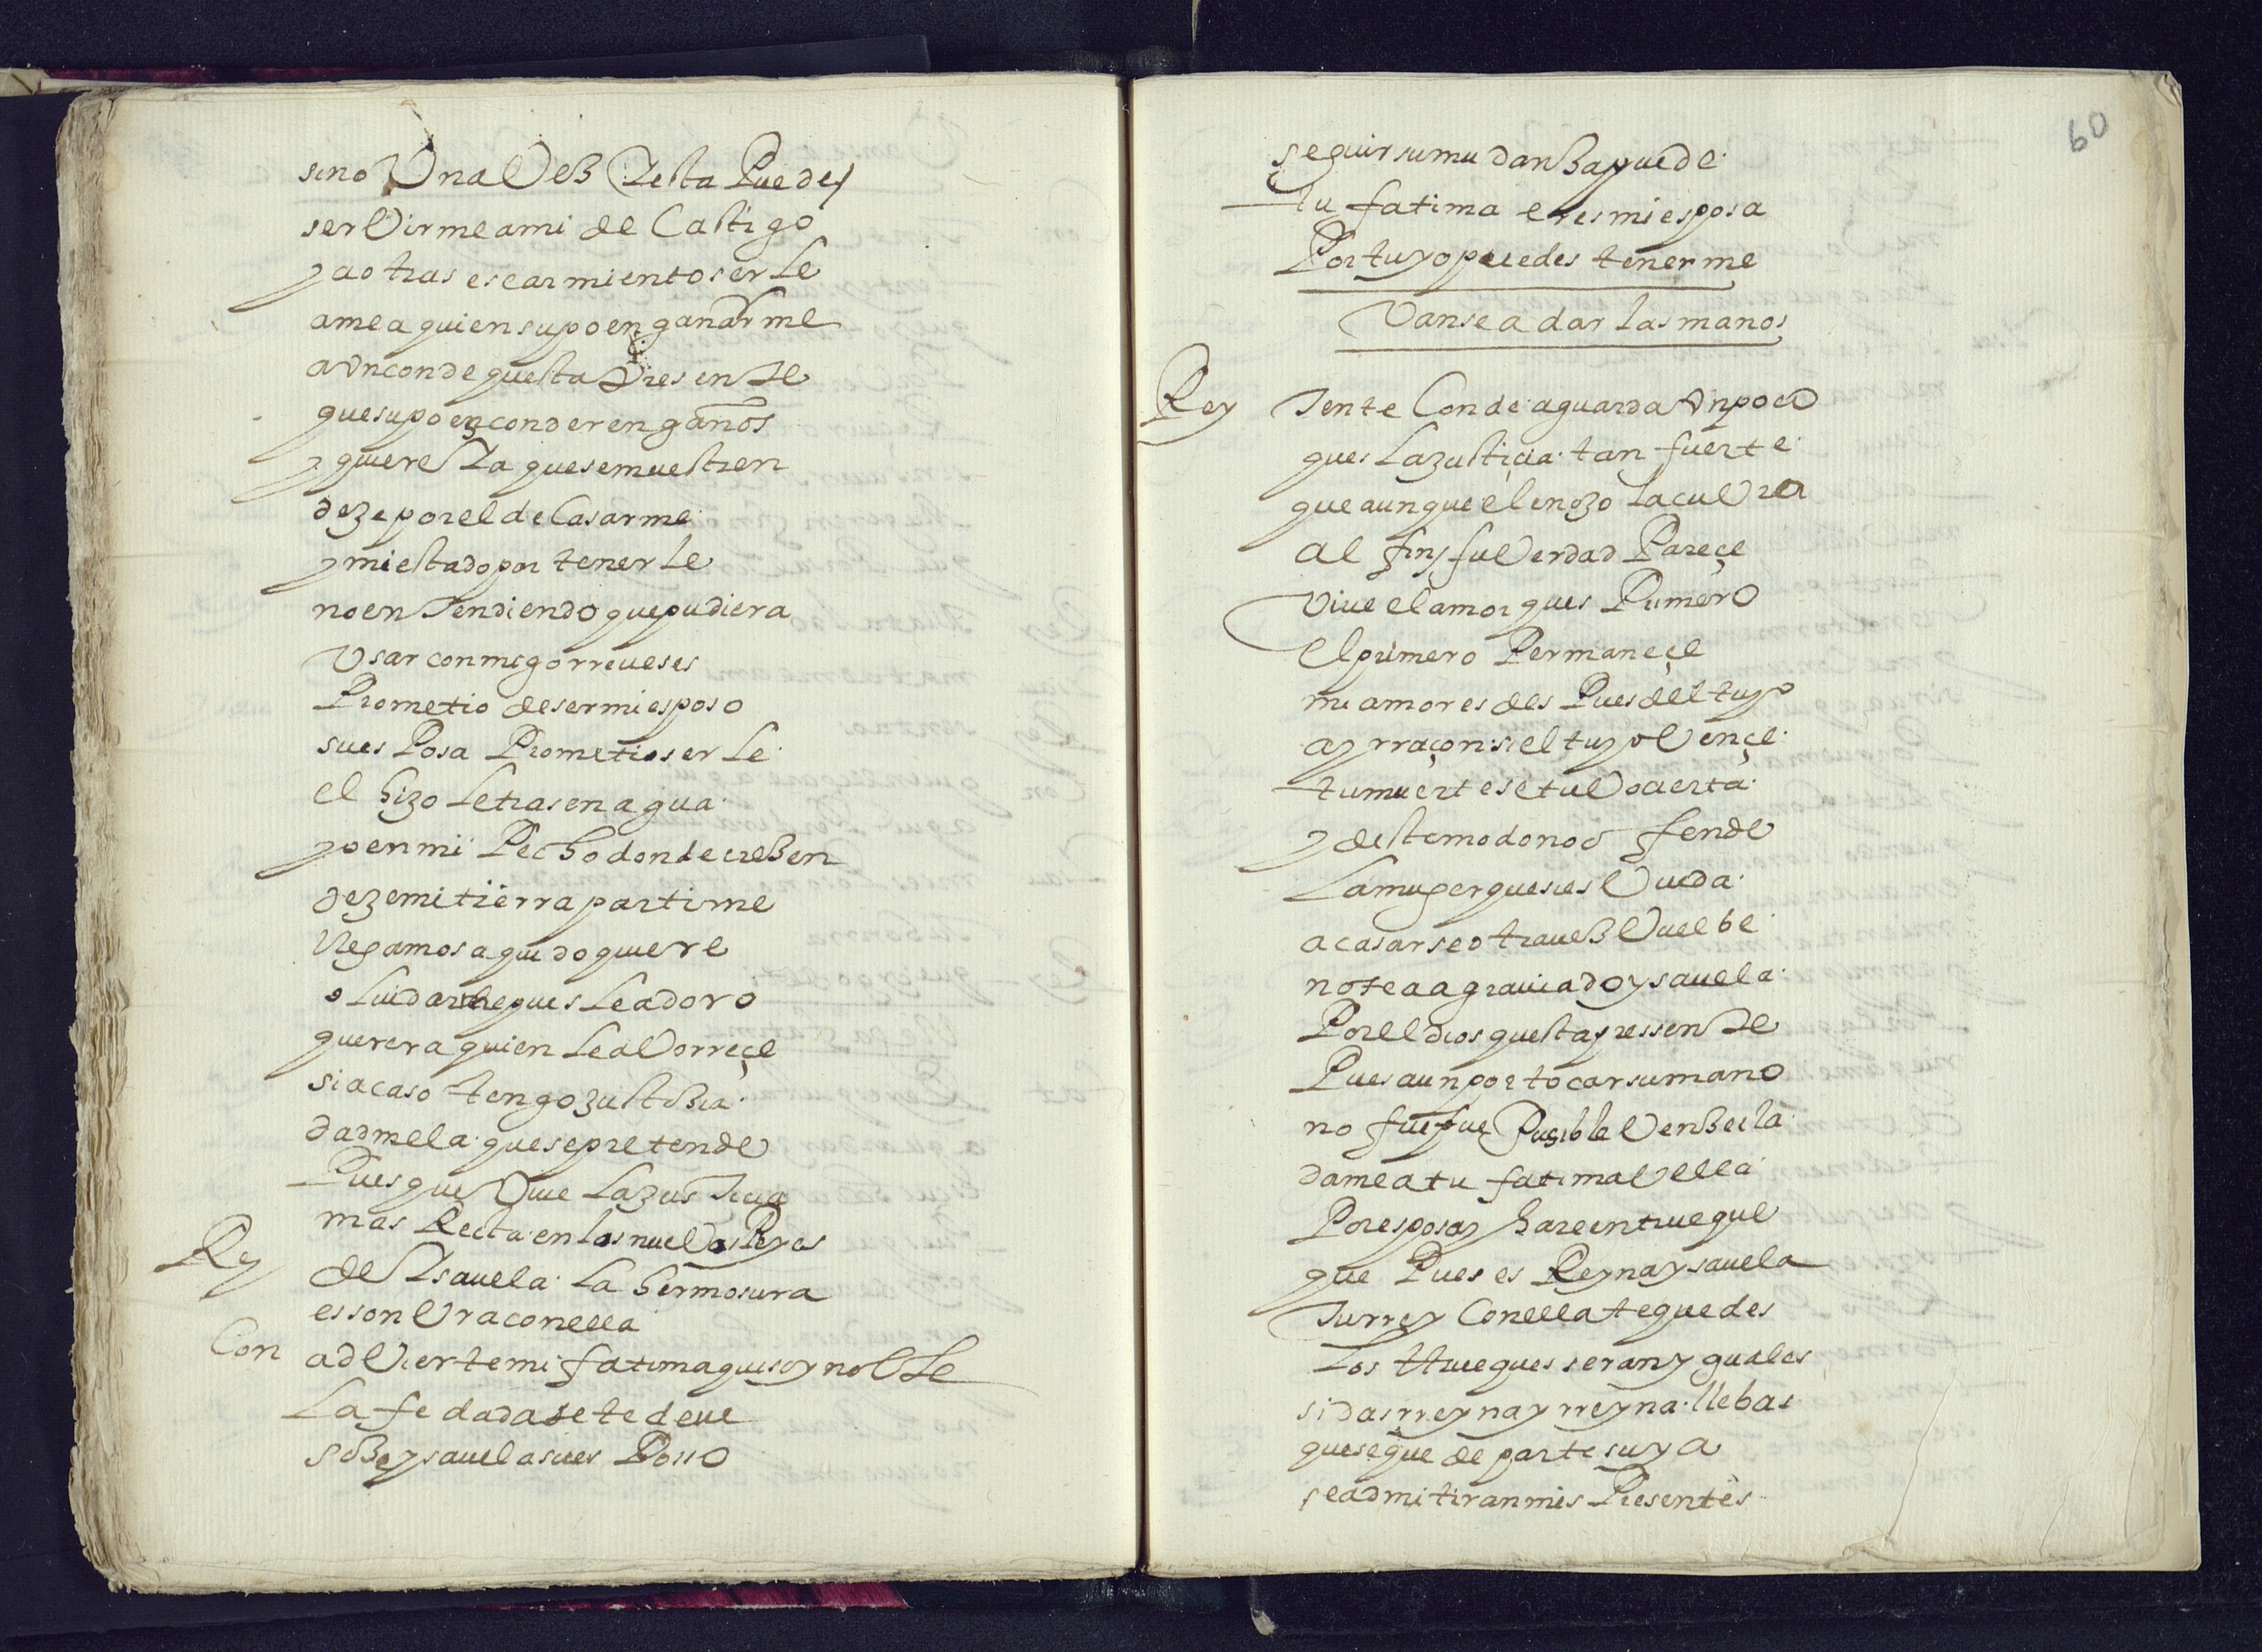 sino Una Vez y esta Puede
serVirme ami de Castigo
y ao tras escarmiento serle
ame a quien supo enganarme
a Un conde questa Presente
que supo esconder enganos
y quiere Ya que se muestren
dexe por el de Casarme
y mi estado por tenerle
no entendiendo que pudiera
Usar conmigo rreveses
Prometio de ser mi esposo
su esPosa Prometi ser le
el hizo letras en agua
yo en mi Pecho donde creßen
dexe mi tierra partime
llegamos aqui do quiere
oluidarme pues le adoro
querer a quien le aVorreçe
si acaso tengo justißia
dadmela que se pretende
Pues que Viue la justiçia
mas Recta en los nueVos Reyes
Rey de Ysauela la hermosura
es sonVra con ella
Con adVierte mi fatima qui soy nobLe
La fe dada se te deue
soße ysauela su esPosso
60
seguir su mudanßa puede
tu fatima eres mi esposa
Por tuyo puedes tenerme
Vanse a dar las manos
Rey Tente Conde aguarda Un poco
ques la justiçia tan fuerte
que aunque el enojo la cuVra
al fin su Verdad Pareçe
Viue el amor ques Primero
el primero Permaneçe
mi amor es desPues del tuyo
ay rraçon si el tuyo Vençe
tu muerte se tuVo çierta
y deste modo no ofende
La muger ques es Viuda
a casarse otra ueß Vuelbe
no te a agrauiado ysauela
Por el dios questa pressente
Pues aun por tocar su mano
no fue fue Pusible Venßerla
dame a tu fatima Vella
Por esposa y hare en trueque
que Pues es Reyna ysauela
Tu rrey Con ella te quedes
Los trueques seran yguales
si das rreyna y rreyna llebas
que se que de parte suya
se admitiran mis Presentes